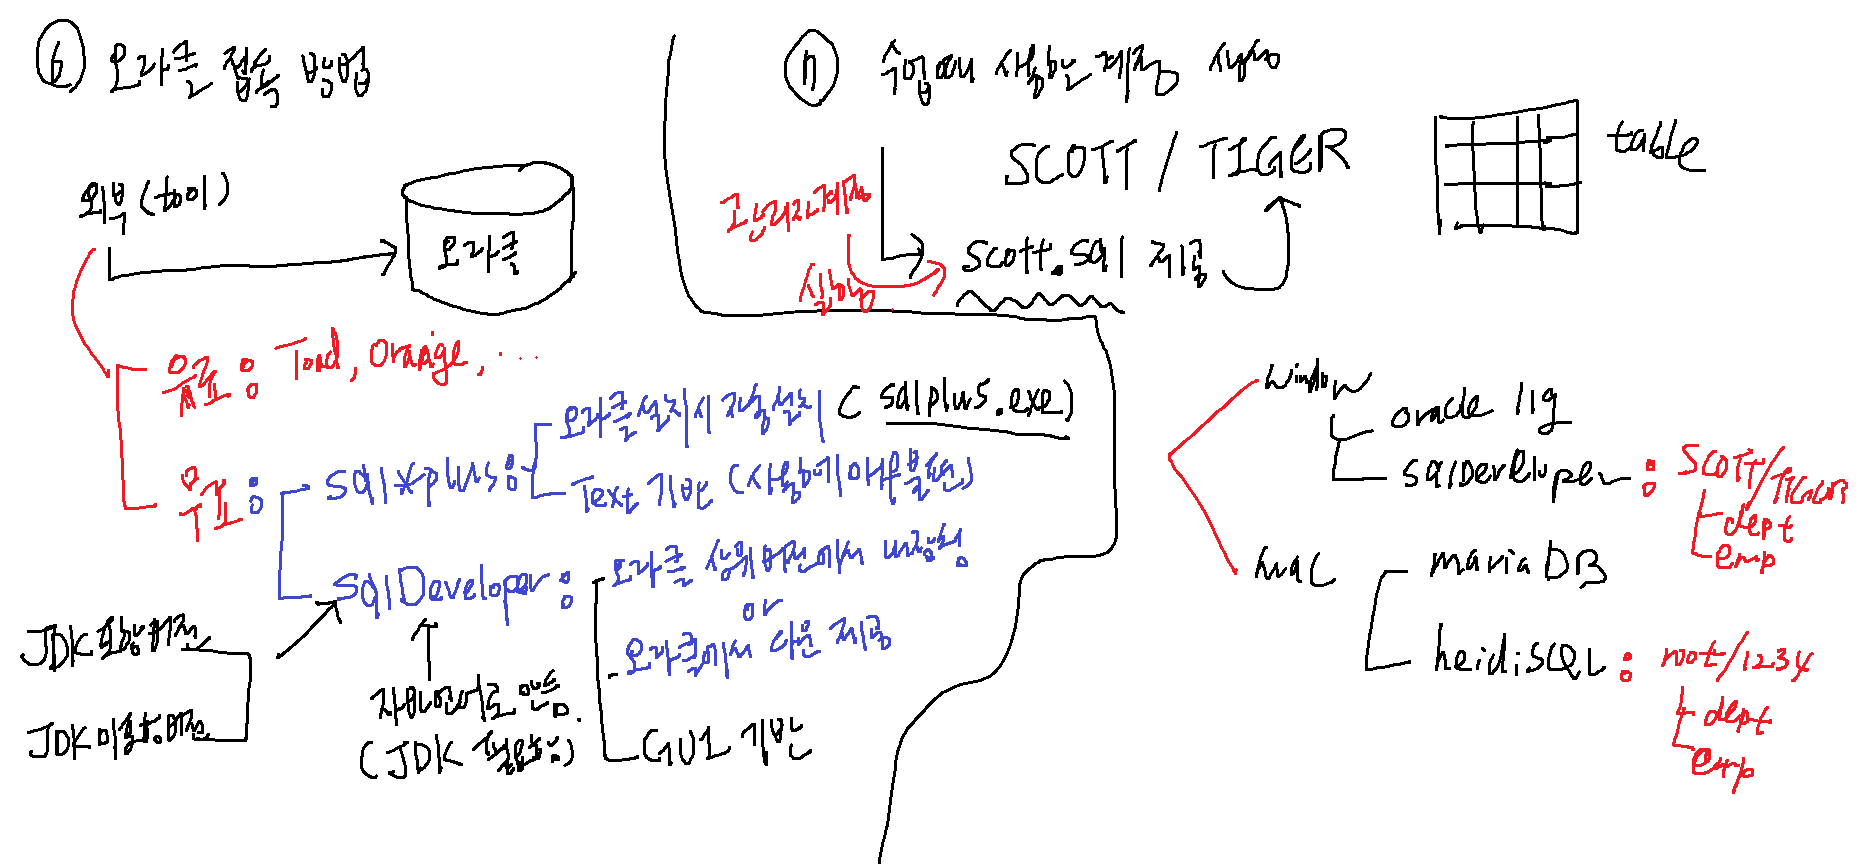 ⑥ 오라클 접속 방법
외부 (tool)
오라클
유료 : Toad, Orange, ...
무료 :
sql*plus :
오라클설치시 자동설치 ( sqlplus.exe)
Text 기반 (사용하기 매우불편)
sqlDeveloper :
오라클 상위버전에서 내장됨
or
오라클에서 다운 제공
GUI 기반
JDK 포함버전
JDK 미포함버전
자바언어로 만듬.
(JDK 필요함)
⑦ 수업때 사용하는 계정 생성
SCOTT / TIGER
관리자계정
실행
scott.sql 제공
table
window
oracle 11g
sqlDeveloper : SCOTT/TIGER
dept
emp
mac
mariaDB
heidiSQL : root/1234
dept
emp